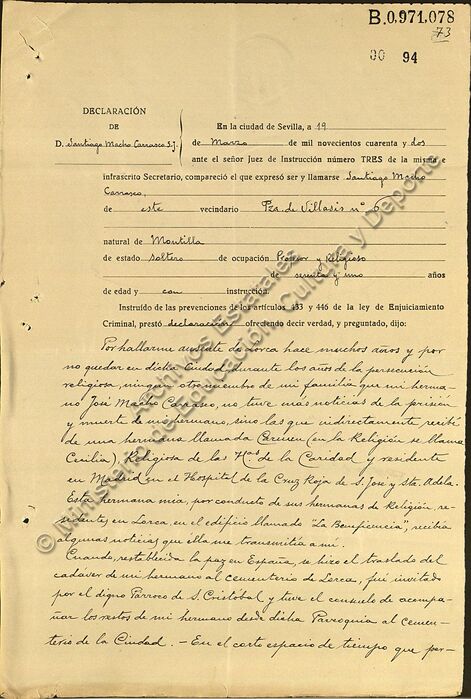 B.0.971.078
73
00 94
DECLARACIÓN
DE
D. Santiago Macho Carrasco S.J.
En la ciudad de Sevilla, a 19
de Marzo de mil novecientos cuarenta y dos
ante el señor Juez de Instrucción número TRES de la misma e
infrascrito Secretario, compareció el que expresó ser y llamarse Santiago Macho
Carrasco,
de este vecindario Pza. de Villasis nº 6
natural de Montilla
de estado soltero de ocupación Profesor y Religioso
de sesenta y uno años
de edad y con instrucción.
Instruído de las prevenciones de los artículos 433 y 446 de la ley de Enjuiciamiento
Criminal, prestó declaración ofreciendo decir verdad, y preguntado, dijo:
Por hallarme ausente de Lorca hace muchos años y por
no quedar en dicha Ciudad durante los años de la persecución
religiosa, ningún otro miembro de mi familia que mi herma-
no José Macho Carrasco, no tuve más noticias de la prisión
y muerte de mi hermano, sino las que indirectamente recibí
de una hermana llamada Carmen (en la Religión se llama
Cecilia) Religiosa de las Hnas de la Caridad y residente
en Madrid en el Hospital de la Cruz Roja de S. José y Sta. Adela.
Esta hermana mía, por conducto de sus hermanas de Religión, re-
sidentes en Lorca, en el edificio llamado "La Beneficencia", recibía
algunas noticias que ella me transmitía a mi.
Cuando, restablecida la paz en España, se hizo el traslado del
cadáver de mi hermano al cementerio de Lorca, fuí invitado
por el digno Párroco de S. Cristóbal y tuve el consuelo de acompa-
ñar los restos de mi hermano desde dicha Parroquia al cemen-
terio de la Ciudad. - En el corto espacio de tiempo que per-
© Ministerio de Educación, Cultura y Deporte
Archivos Estatales